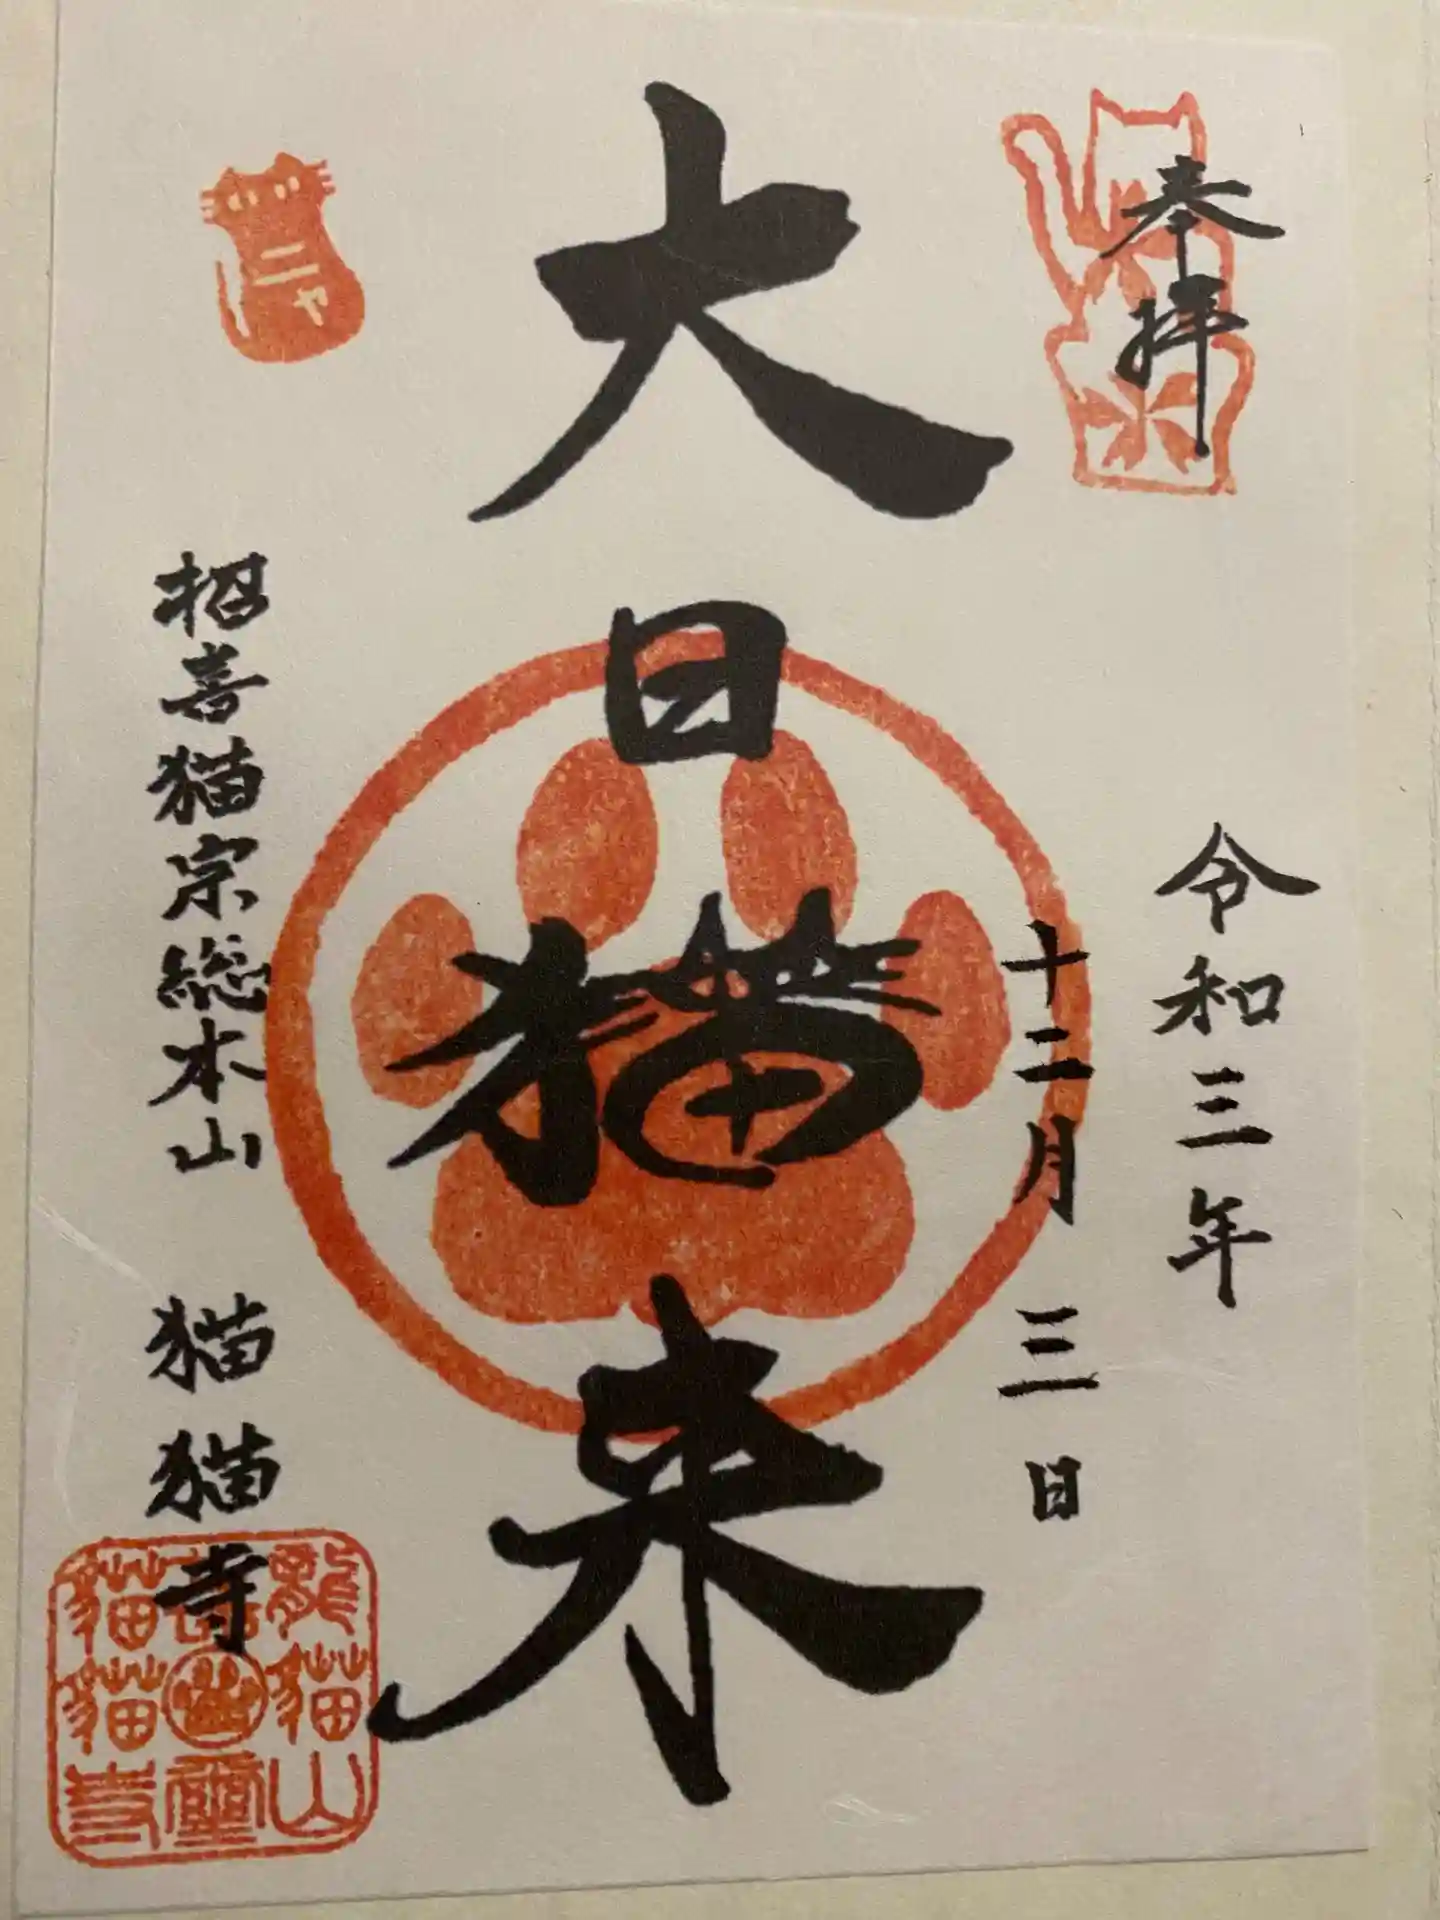 奉拝
令和三年
十二月三日
大日猫来
ニャ
招喜猫宗総本山 猫猫寺
龍猫山
猫猫寺